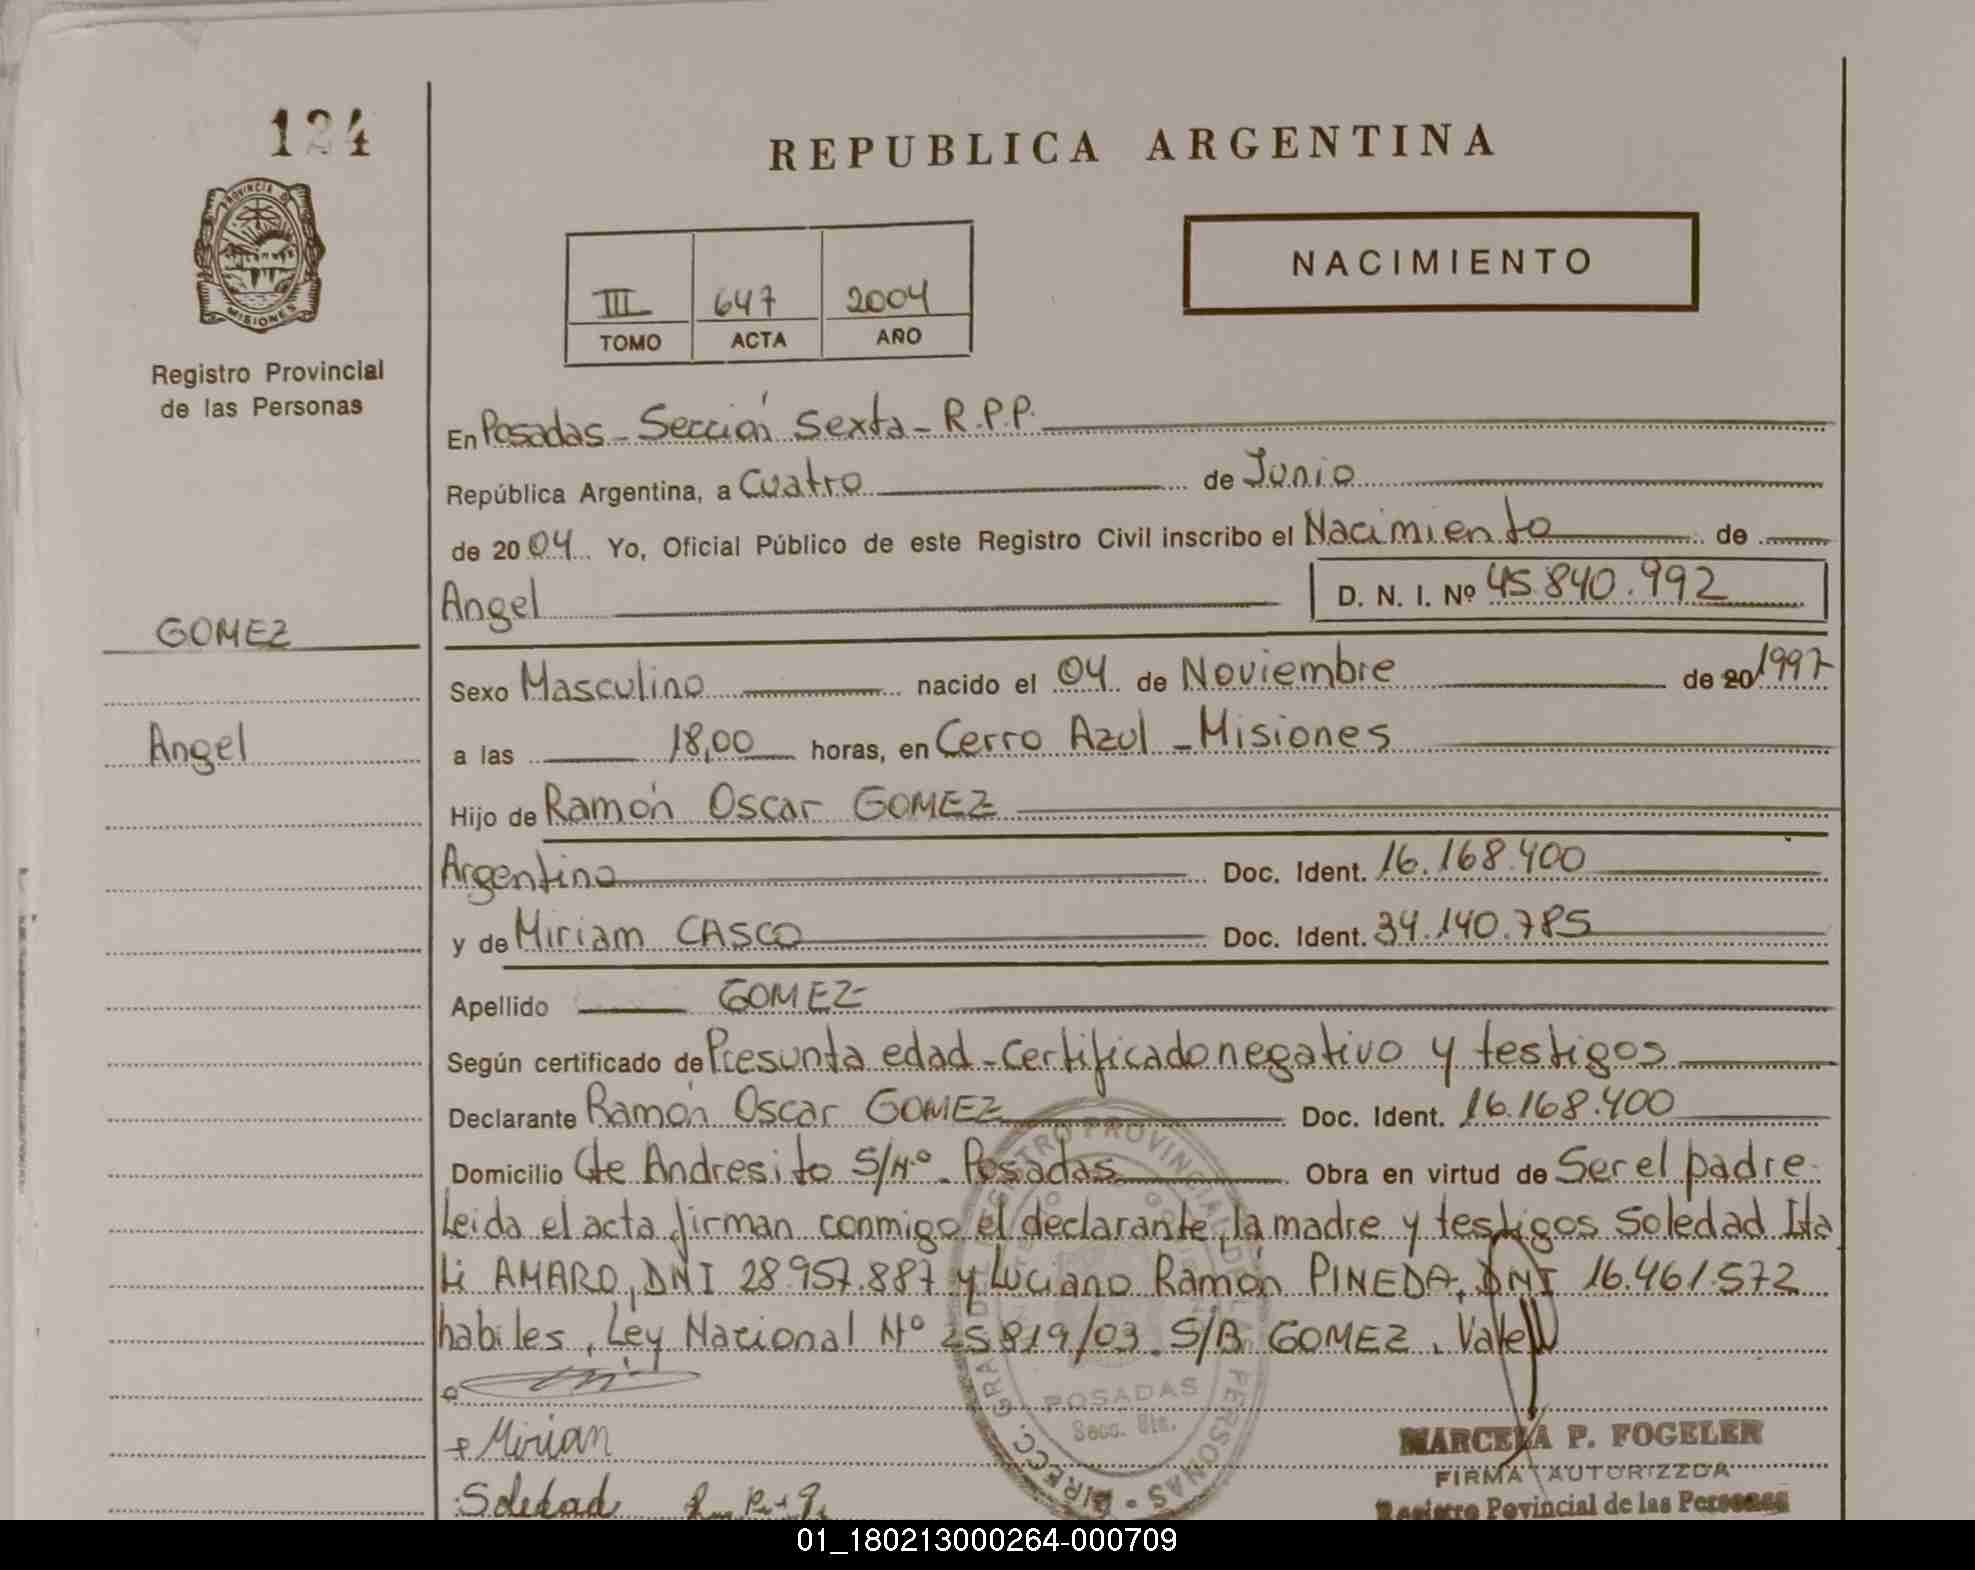 124
REPUBLICA ARGENTINA
PROVINCIA DE
MISIONES
Registro Provincial
de las Personas
NACIMIENTO
III 647 2004
TOMO ACTA AÑO
En Posadas - Sección Sexta - R.P.P.
República Argentina, a Cuatro de Junio
de 2004 Yo, Oficial Público de este Registro Civil inscribo el Nacimiento de
Angel D. N. I. Nº 45.840.992
GOMEZ
Sexo Masculino nacido el 04 de Noviembre de 20 1997
Angel
a las 18,00 horas, en Cerro Azul - Misiones
Hijo de Ramón Oscar GOMEZ
Argentino Doc. Ident. 16.168.400
y de Miriam CASCO Doc. Ident. 34.140.785
Apellido GOMEZ
Según certificado de Presunta edad - Certificado negativo y testigos
Declarante Ramón Oscar GOMEZ Doc. Ident. 16.168.400
Domicilio Cte Andresito S/Nº - Posadas Obra en virtud de Ser el padre.
Leida el acta firman conmigo el declarante, la madre y testigos Soledad Ita
li AMARO, DNI 28.957.887 y Luciano Ramón PINEDA, DNI 16.461.572
habiles, Ley Nacional Nº 25.819/03. S/B GOMEZ. Vale
POSADAS
Secc. 6ta.
Mirian
MARCELA P. FOGELER
FIRMA AUTORIZZDA
Soledad
Registro Povincial de las Personas
01_180213000264-000709